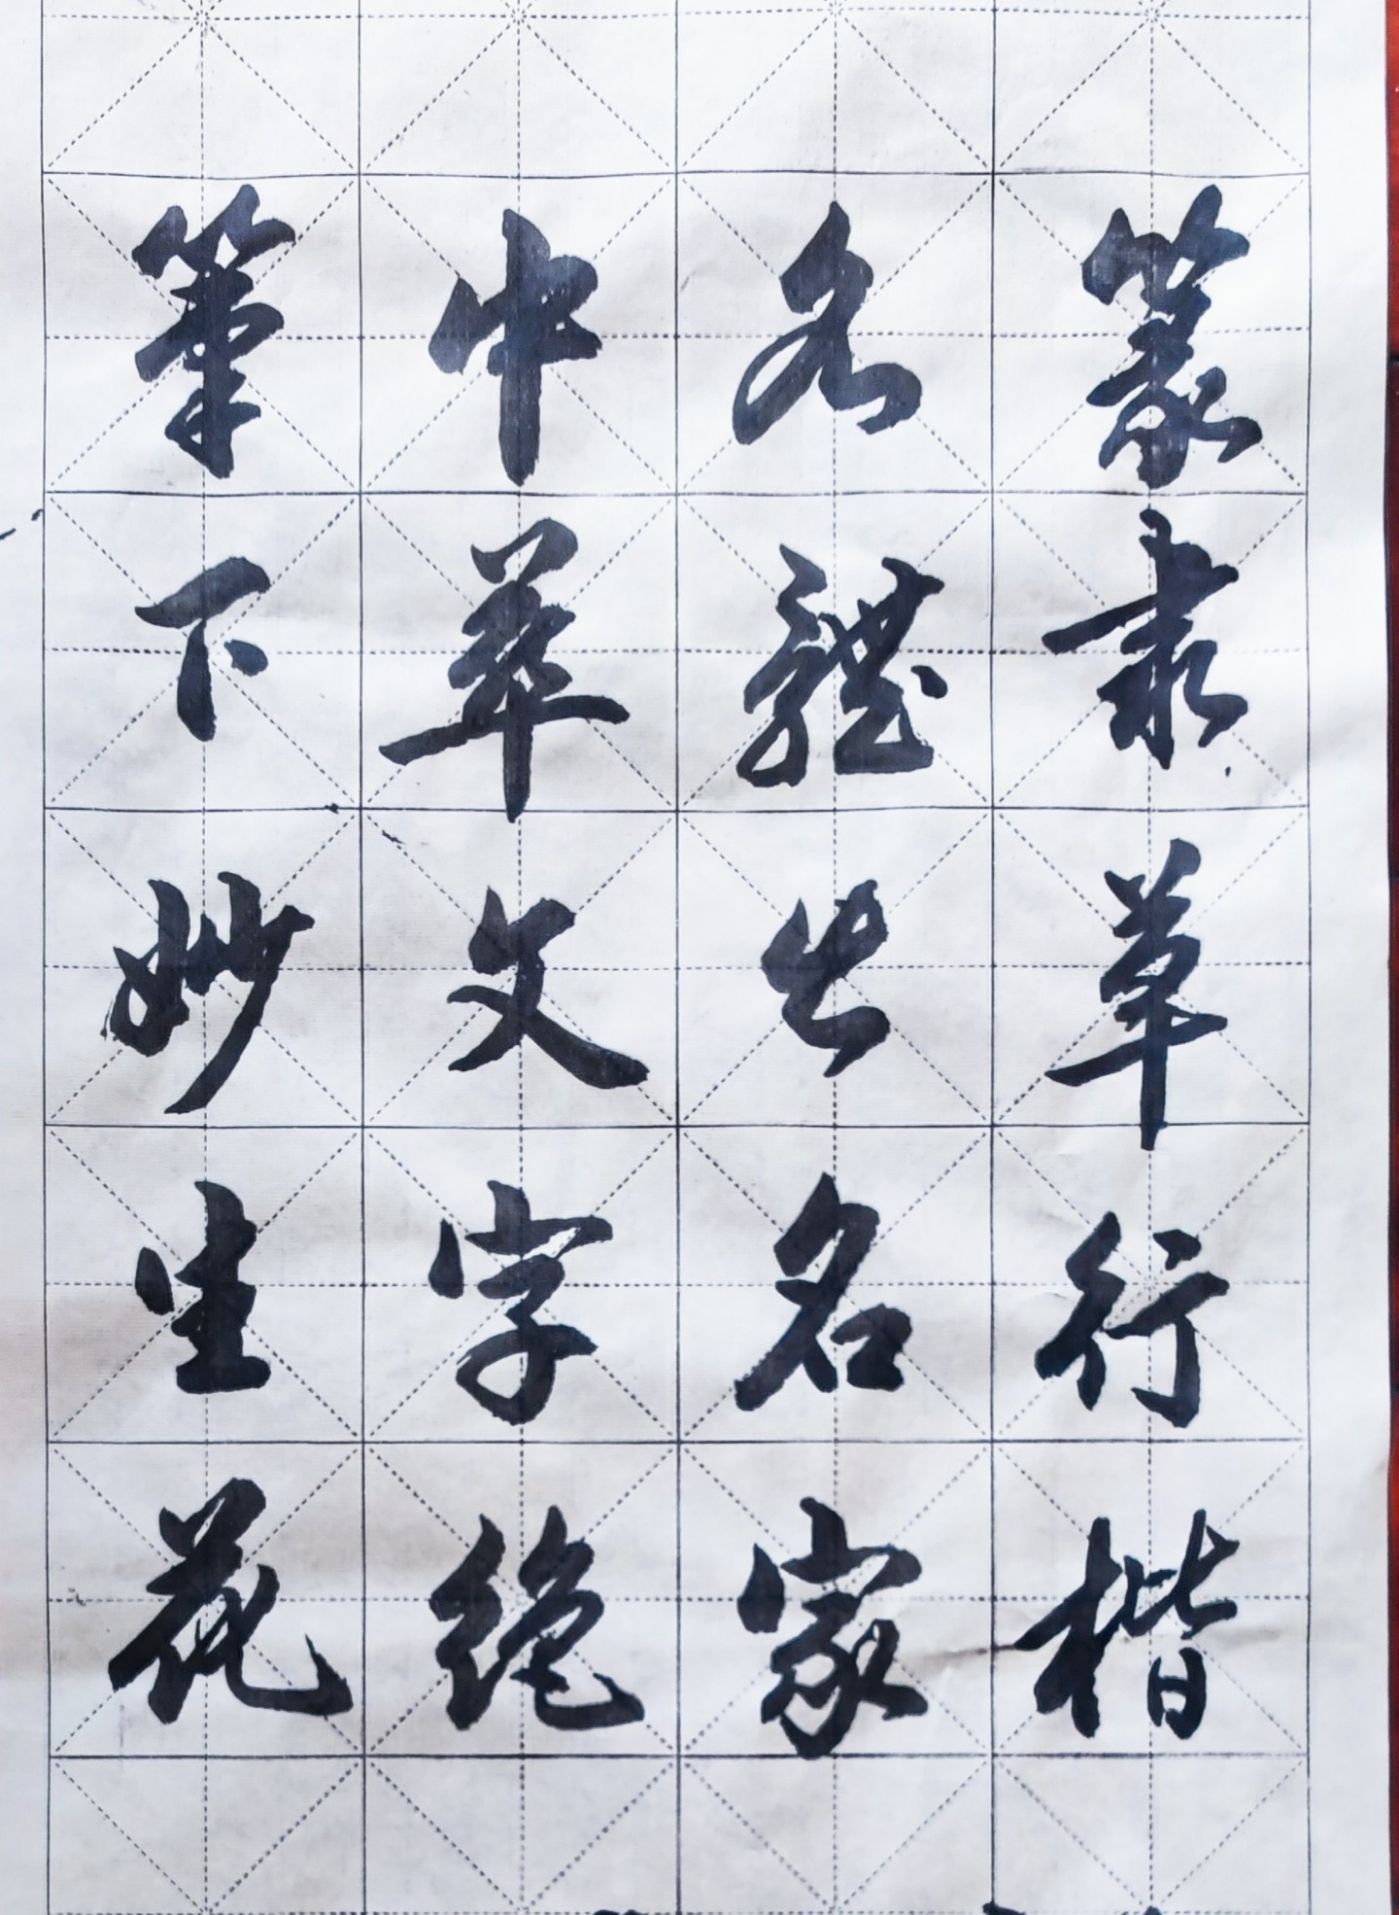 篆隶草行楷
各體出名家
中华文字绝
筆下妙生花